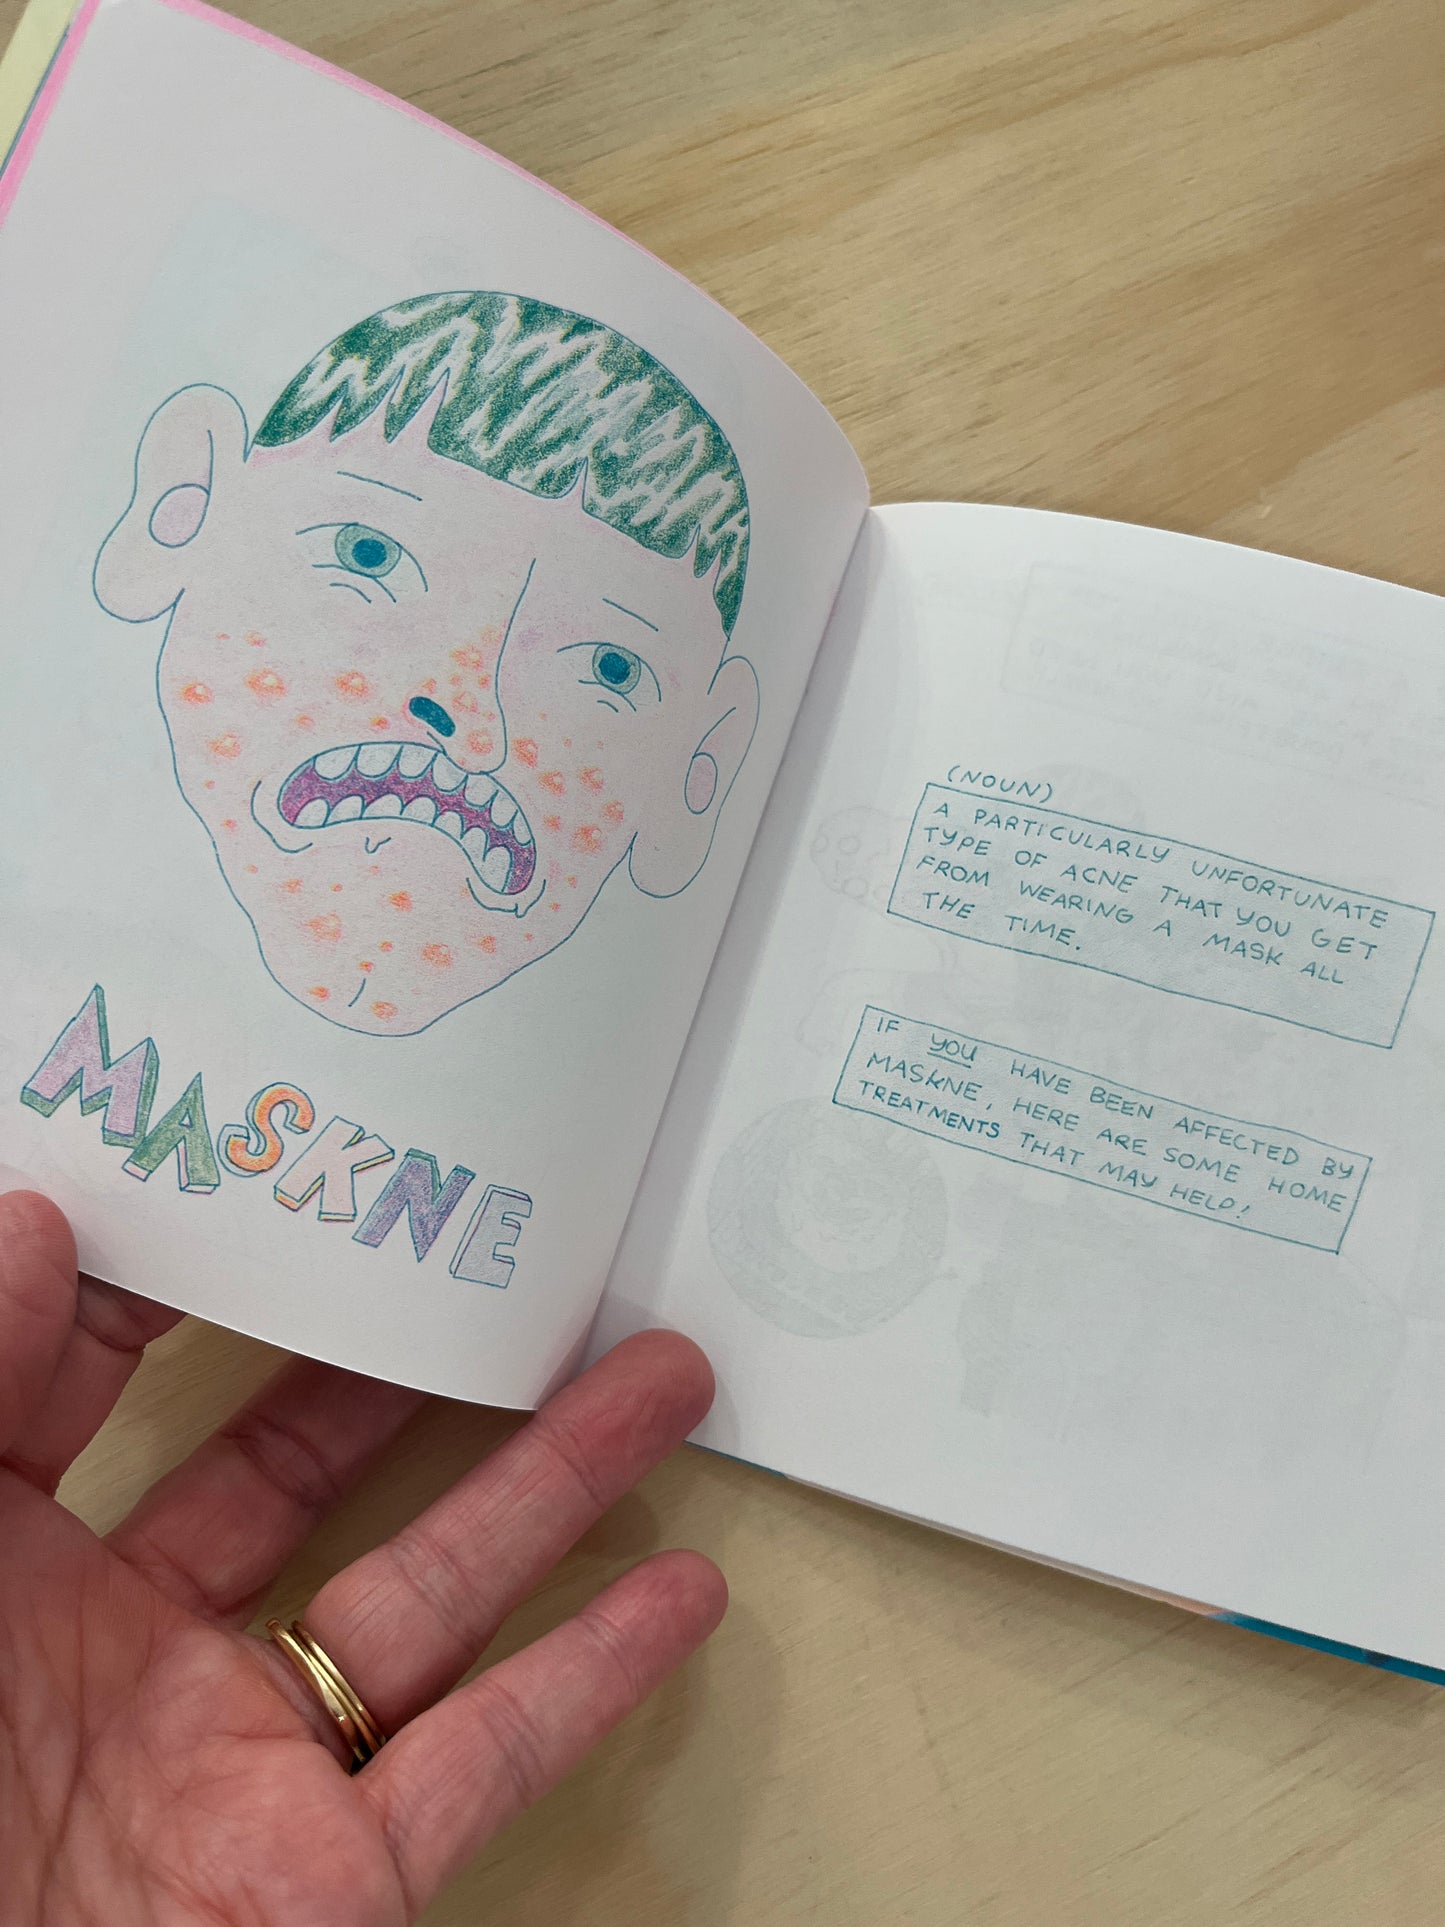 MASKNE
(NOUN)
A PARTICULARLY UNFORTUNATE
TYPE OF ACNE THAT YOU GET
FROM WEARING A MASK ALL
THE TIME.
IF YOU HAVE BEEN AFFECTED BY
MASKNE, HERE ARE SOME HOME
TREATMENTS THAT MAY HELP!